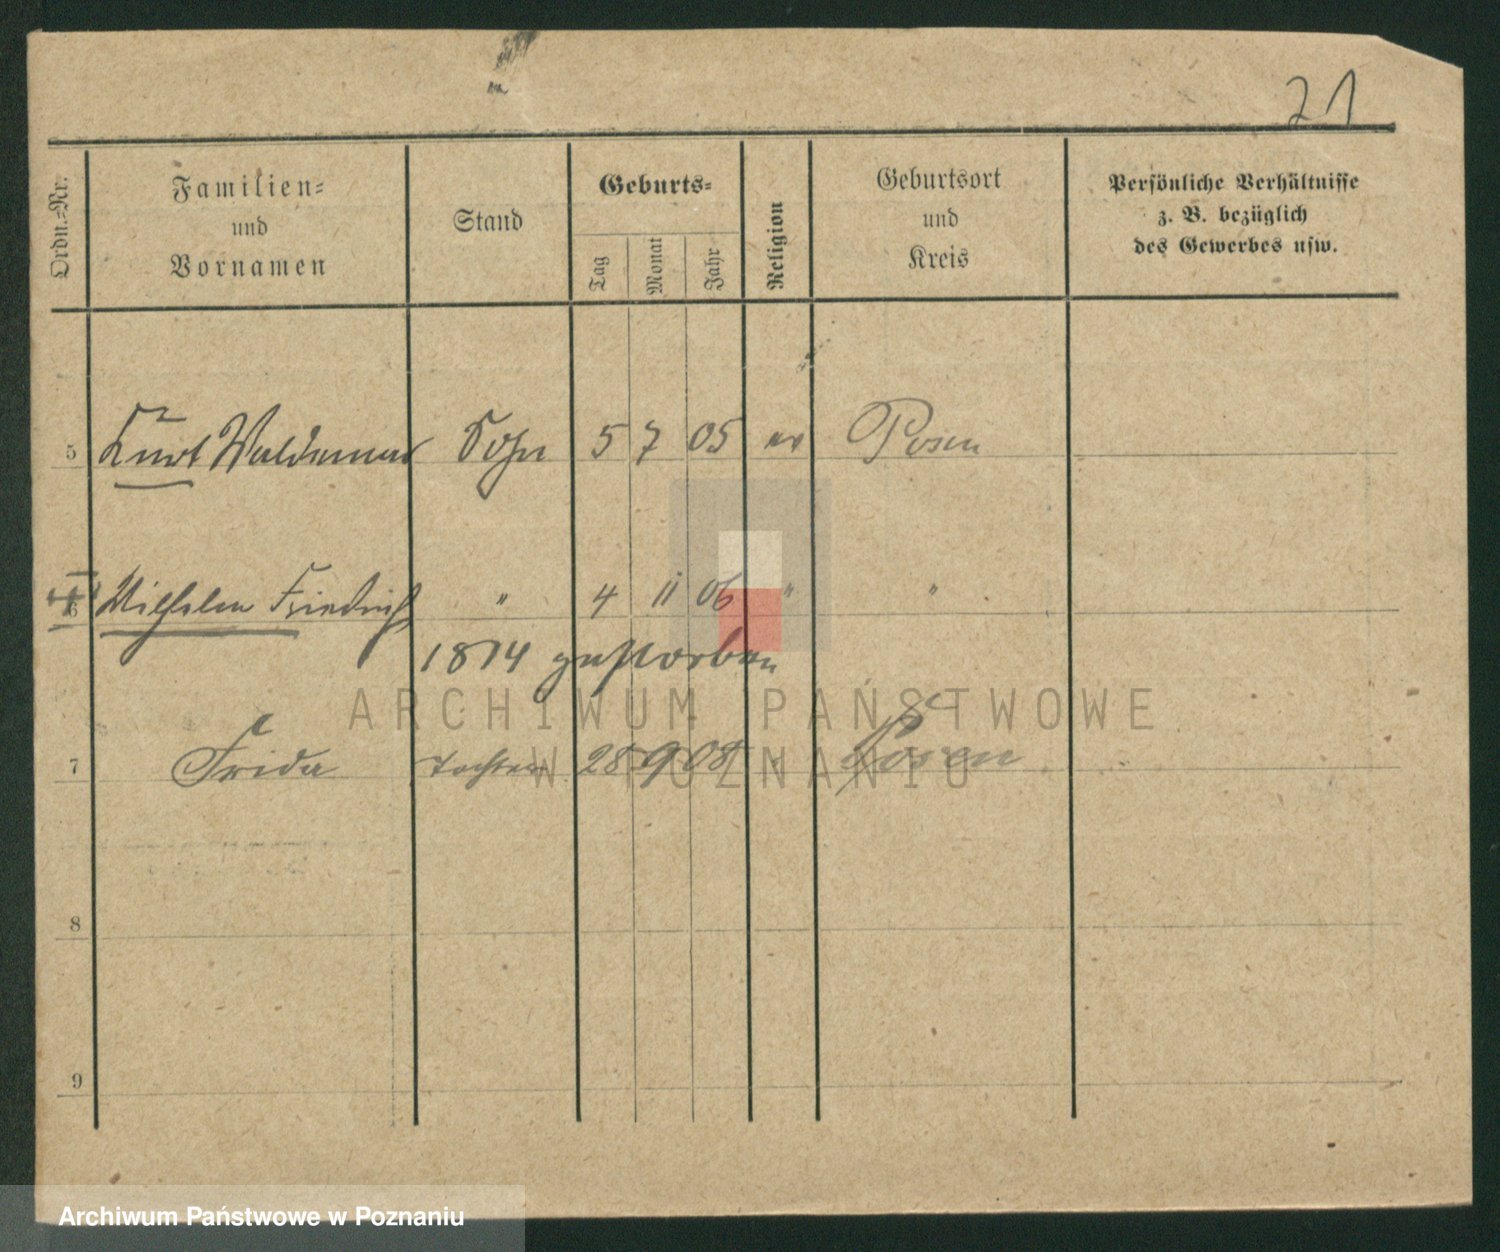 21
Ordn.-Nr.
Familien-
und
Vornamen
Stand
Geburts-
Tag
Monat
Jahr
Religion
Geburtsort
und
Kreis
Persönliche Verhältnisse
z. B. bezüglich
des Gewerbes usw.
5 Kurt Waldemar Sohn 5 7 05 ev Posen
6 Wilhelm Friedrich " 4 11 06 " "
1814 gestorben
ARCHIWUM PAŃSTWOWE
W POZNANIU
7 Frida Tochter 28 9 08 " Posen
8
9
Archiwum Państwowe w Poznaniu